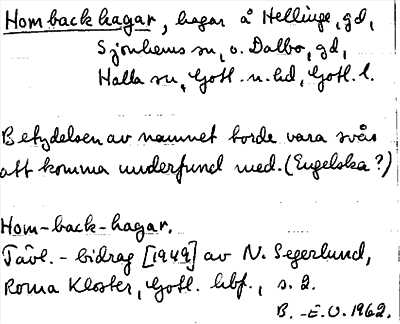 Hombackhagar, hagar å Hellinge, gd,
Sjonhems sn, o. Dalbo, gd,
Halla sn, Gotl. n. hd, Gotl. l.
Betydelsen av namnet torde vara svår
att komma underfund med. (Engelska?)
Hom-back-hagar.
Tävl.-bidrag [1949] av N. Segerlund,
Roma Kloster, Gotl. hbf., s. 2.
B.-E.O. 1962.